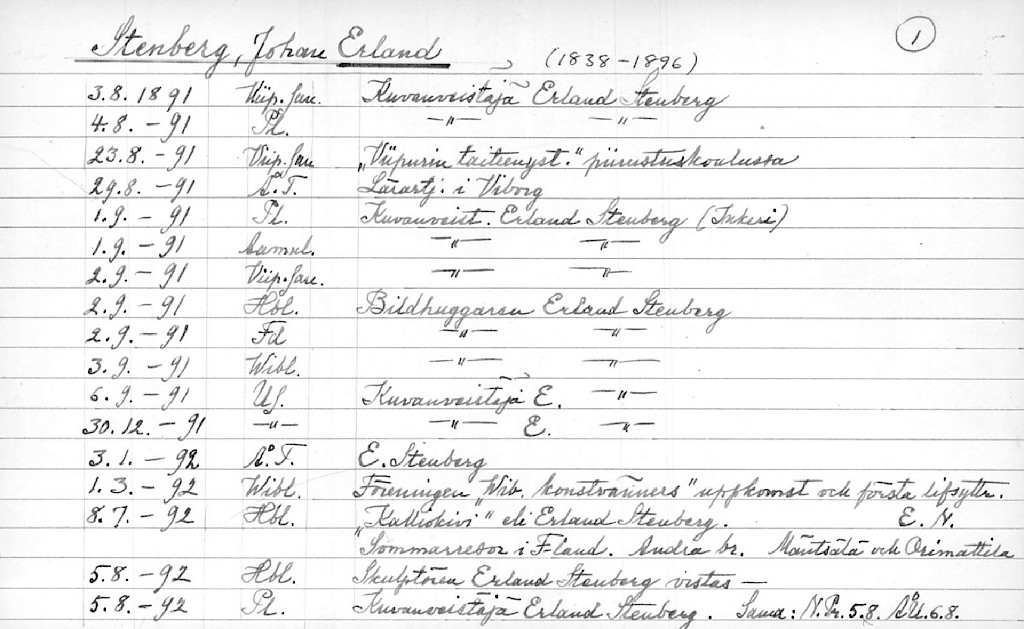 Stenberg, Johan Erland (1838-1896) 1
3.8.1891 Wiip. San. Kuvanveistäjä Erland Stenberg
4.8.-91 Pl. -"- -"-
23.8.-91 Viip. San „Viipurin taiteenyst." piirustuskoulussa
29.8.-91 Å.T. Lärartj. i Viborg
1.9.-91 Pl. Kuvanveist. Erland Stenberg (Inkeri)
1.9.-91 Aamul. -"- -"-
2.9.-91 Viip. San. -"- -"-
2.9.-91 Hbl. Bildhuggaren Erland Stenberg
2.9.-91 Fd -"- -"-
3.9.-91 Wibl. -"- -"-
6.9.-91 Us. Kuvanveistäjä E. -"-
30.12.-91 -"- -"- E. -"-
3.1.-92 Å.T. E. Stenberg
1.3.-92 Wibl. Föreningen „Wib. konstvänners" uppkomst och första lifsyttr.
8.7.-92 Hbl. „Kalliokivi" eli Erland Stenberg. E. N.
„Sommarresor i F-land. Andra br. Mäntsälä och Orimattila
5.8.-92 Hbl. Skulptören Erland Stenberg vistas —
5.8.-92 Pl. Kuvanveistäjä Erland Stenberg. Sama: N.Pr. 5.8. ÅU. 6.8.